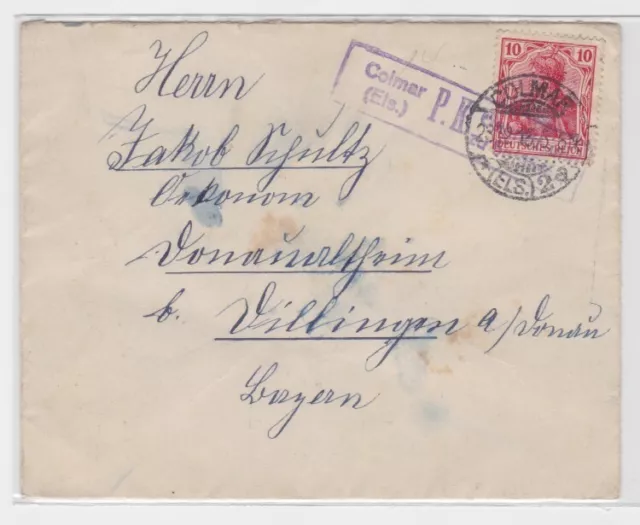 10 10
Colmar
(Els.)
P.K.
COLMAR
(ELS.) 2a
DEUTSCHES REICH
Herrn
Jakob Schultz
Oekonom
Donaualtheim
b. Dillingen a/Donau
Bayern